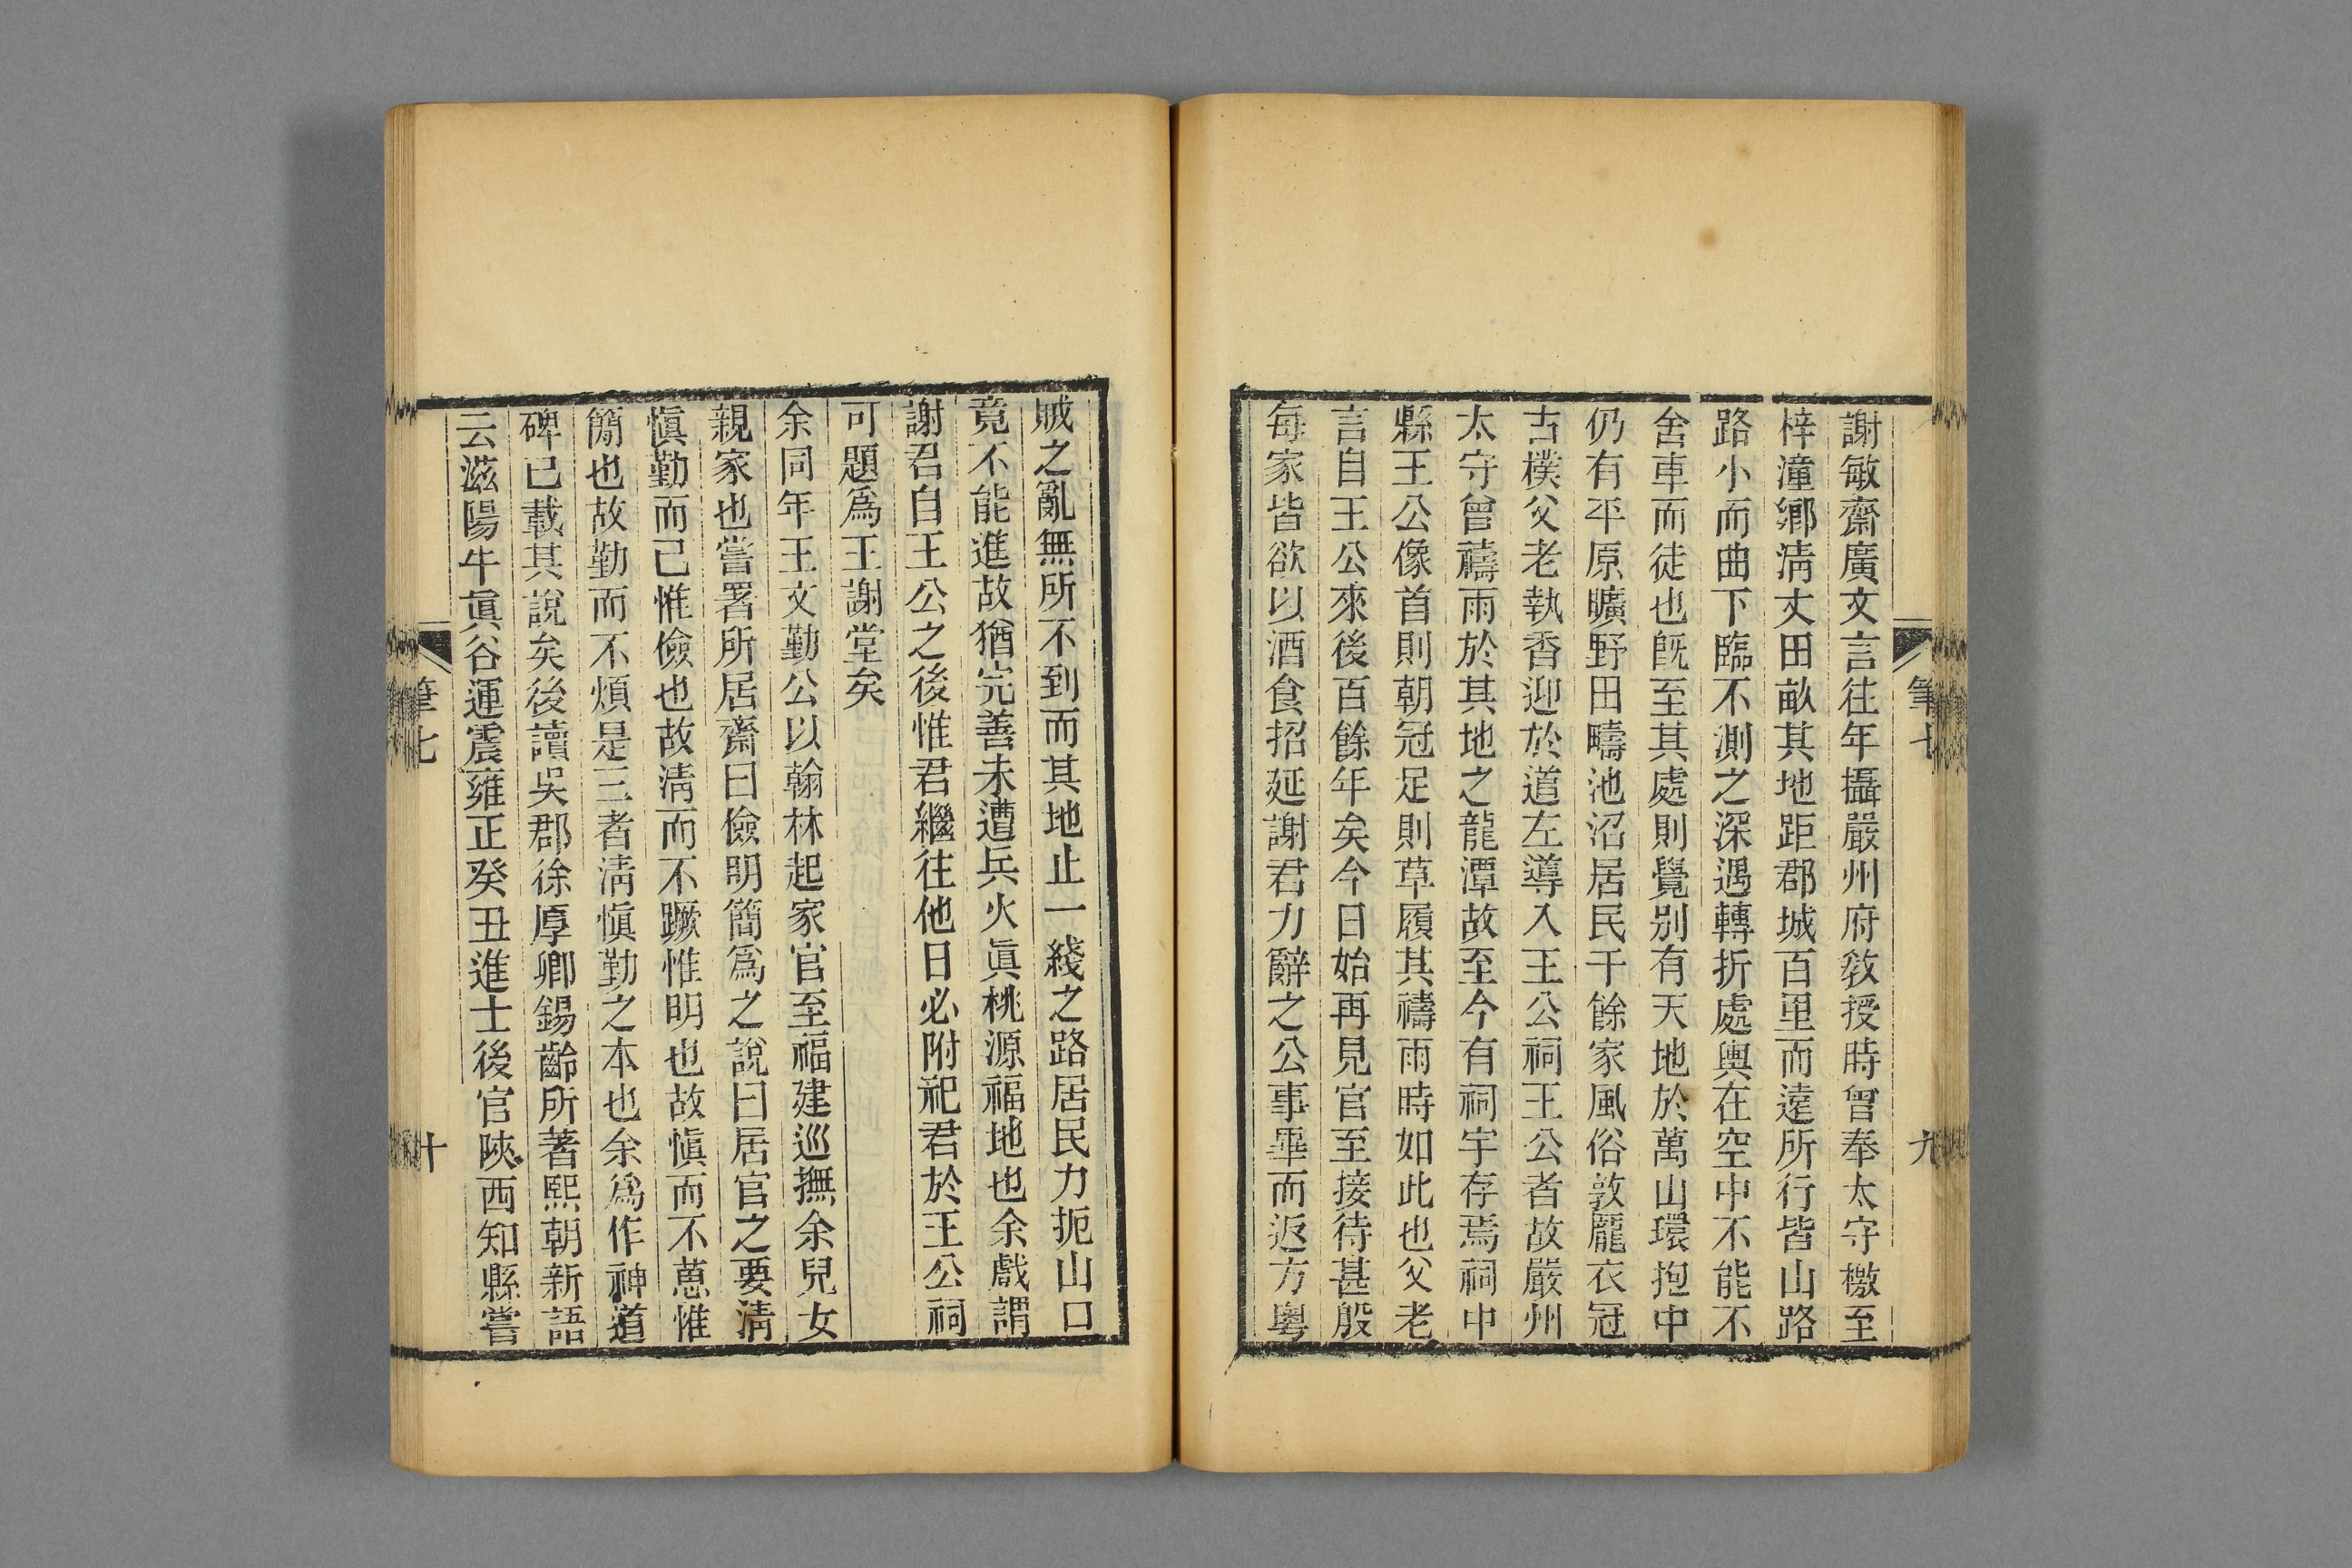 謝敏齋廣文言往年攝嚴州府敎授時曾奉太守檄至
梓潼鄉淸丈田畝其地距郡城百里而遠所行皆山路
路小而曲下臨不測之深遇轉折處輿在空中不能不
舍車而徒也旣至其處則覺别有天地於萬山環抱中
仍有平原曠野田疇池沼居民千餘家風俗敦龐衣冠
古樸父老執香迎於道左導入王公祠王公者故嚴州
太守曾禱雨於其地之龍潭故至今有祠宇存焉祠中
縣王公像首則朝冠足則草履其禱雨時如此也父老
言自王公來後百餘年矣今日始再見官至接待甚殷
每家皆欲以酒食招延謝君力辭之公事畢而返方粵
筆七
九
賊之亂無所不到而其地止一綫之路居民力扼山口
竟不能進故猶完善未遭兵火眞桃源福地也余戲謂
謝君自王公之後惟君繼往他日必附祀君於王公祠
可題爲王謝堂矣
余同年王文勤公以翰林起家官至福建巡撫余兒女
親家也嘗署所居齋曰儉明簡爲之說曰居官之要淸
愼勤而已惟儉也故淸而不蹶惟明也故愼而不葸惟
簡也故勤而不煩是三者淸愼勤之本也余爲作神道
碑已載其說矣後讀吳郡徐厚卿錫齡所著熙朝新語
云滋陽牛眞谷運震雍正癸丑進士後官陜西知縣嘗
筆七
十